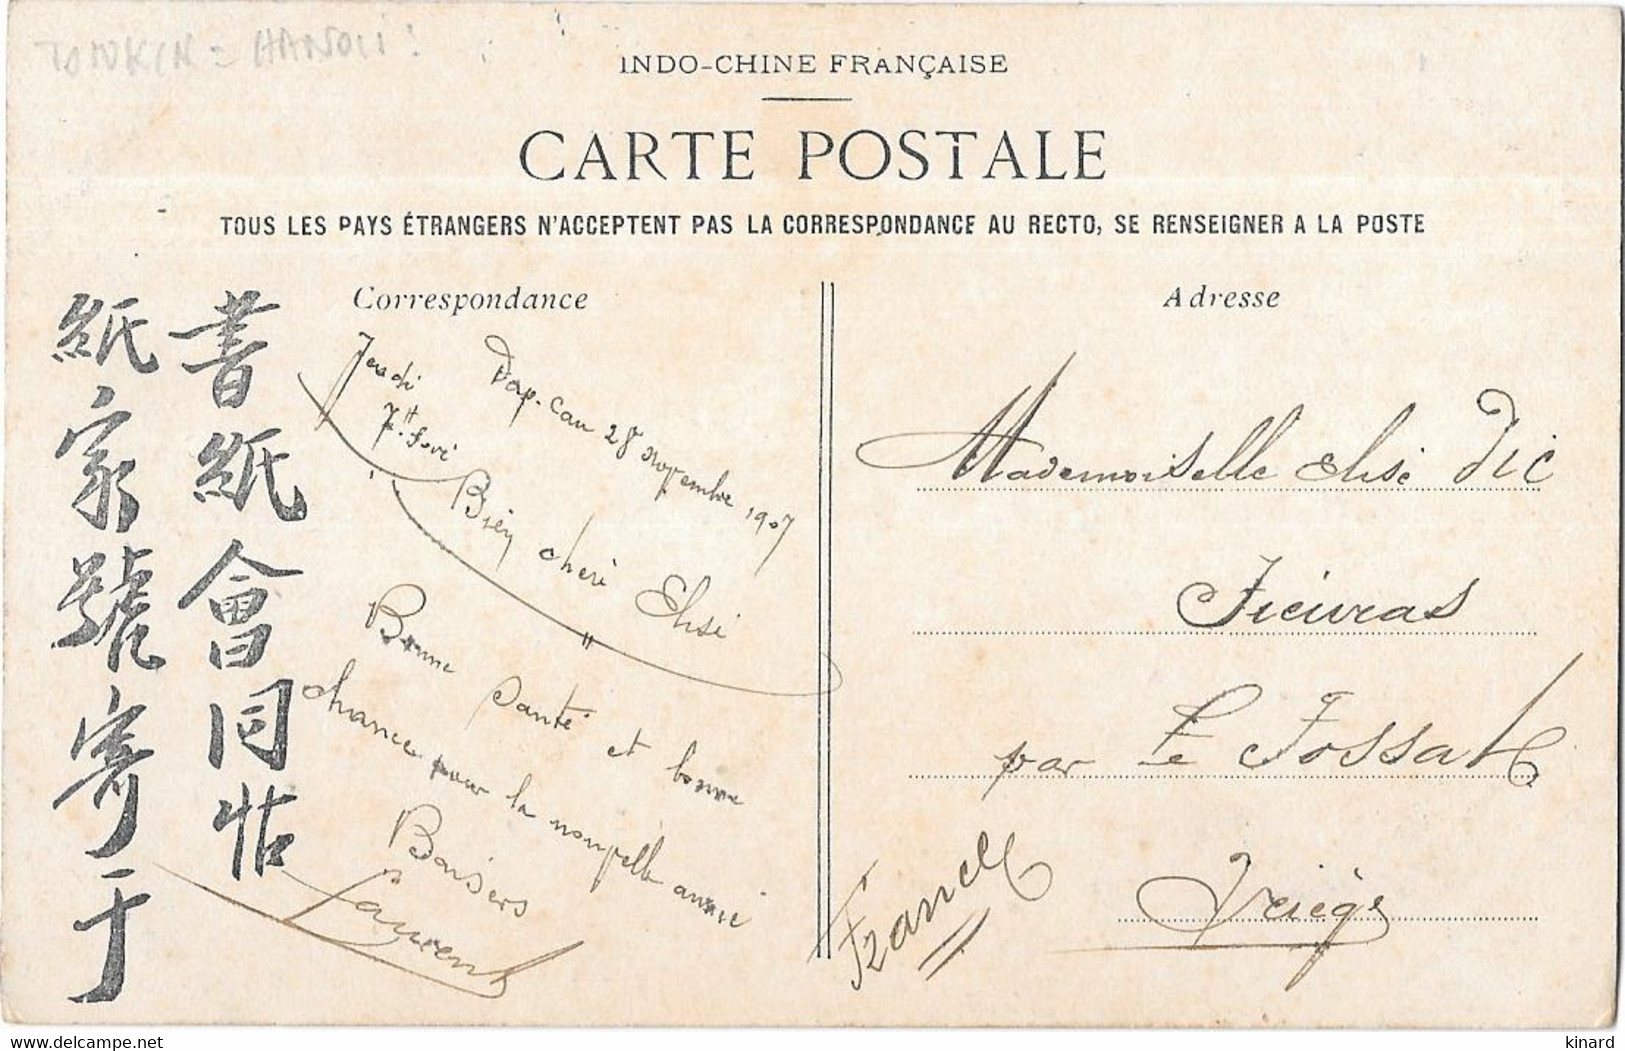 TONKIN = HANOII
INDO-CHINE FRANÇAISE
CARTE POSTALE
TOUS LES PAYS ÉTRANGERS N'ACCEPTENT PAS LA CORRESPONDANCE AU RECTO, SE RENSEIGNER A LA POSTE
書紙會同帖
紙家號寄于
Correspondance
Jeudi
Dap-Cau 28 novembre 1907
Bien cheri Elisé
Bonne santé et bonne
chance pour la nouvelle année
Baisers
Laurent
Adresse
Mademoiselle Elisé Dic
par Le Fossat
Ariège
France
delcampe.net
kinard